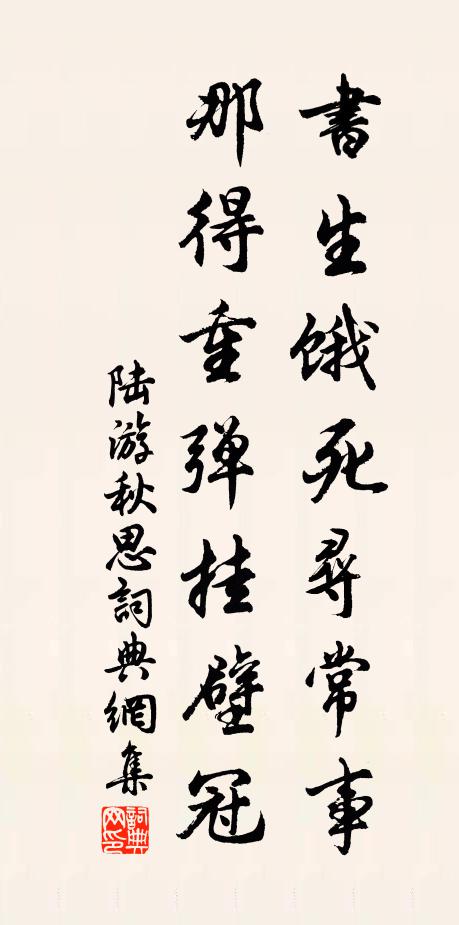 書生餓死尋常事
那得重彈挂壁冠
陸游秋思詞典網集
詞典网印